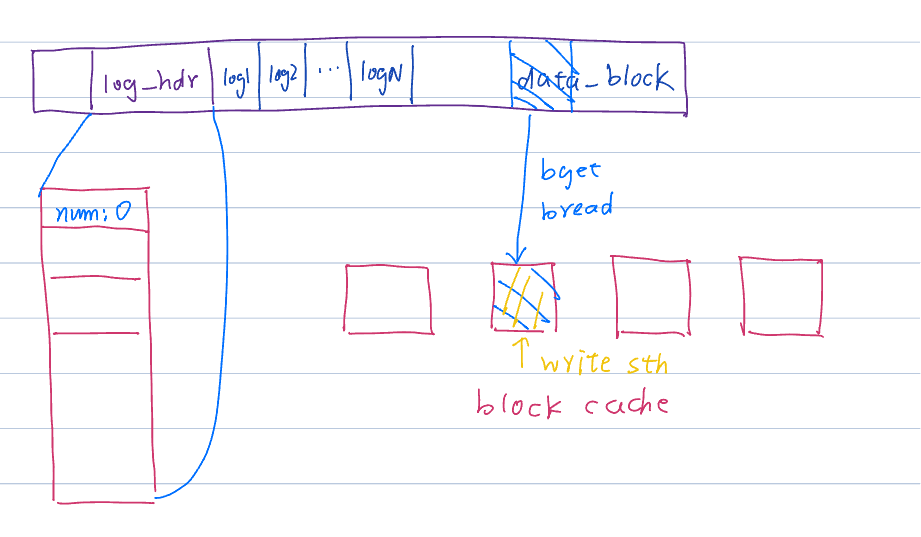 log_hdr log1 log2 ... logN data_block
num: 0
bget
bread
write sth
block cache